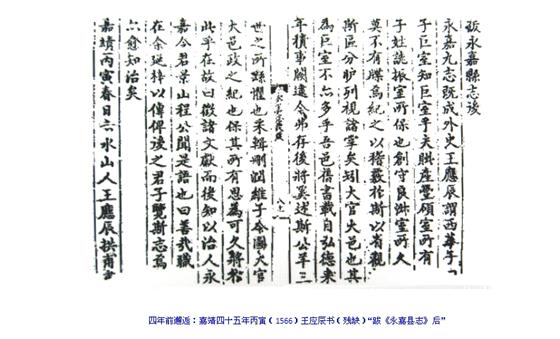 跋永嘉縣志後
永嘉九志既成外史王應辰謂西華子曰
子巨室知巨室乎夫賜產豐碩室所有
子姓詵振室所保也創守良游室所久
莫不有牒為紀之以稽嚴於斯以省觀
斯區分臚列視諸掌矣矧大官大邑也其
為巨室不亦多乎吾邑舊書載自弘德來
年積事闕遺今弗存後將奚述斯公羊三
世之所繇懼也采輯刪潤維子令圖大官
大邑政之紀也保其所有恩為可久將於
此乎在故曰徵諸文獻而後知以治人永
嘉令君景山程公聞是語也曰善哉職
在余延梓以傳俾後之君子覽斯志焉
亦愈知治矣
嘉靖丙寅春日六水山人王應辰拱甫書
四年前邂逅：嘉靖四十五年丙寅（1566）王应辰书（残缺）“跋《永嘉县志》后”